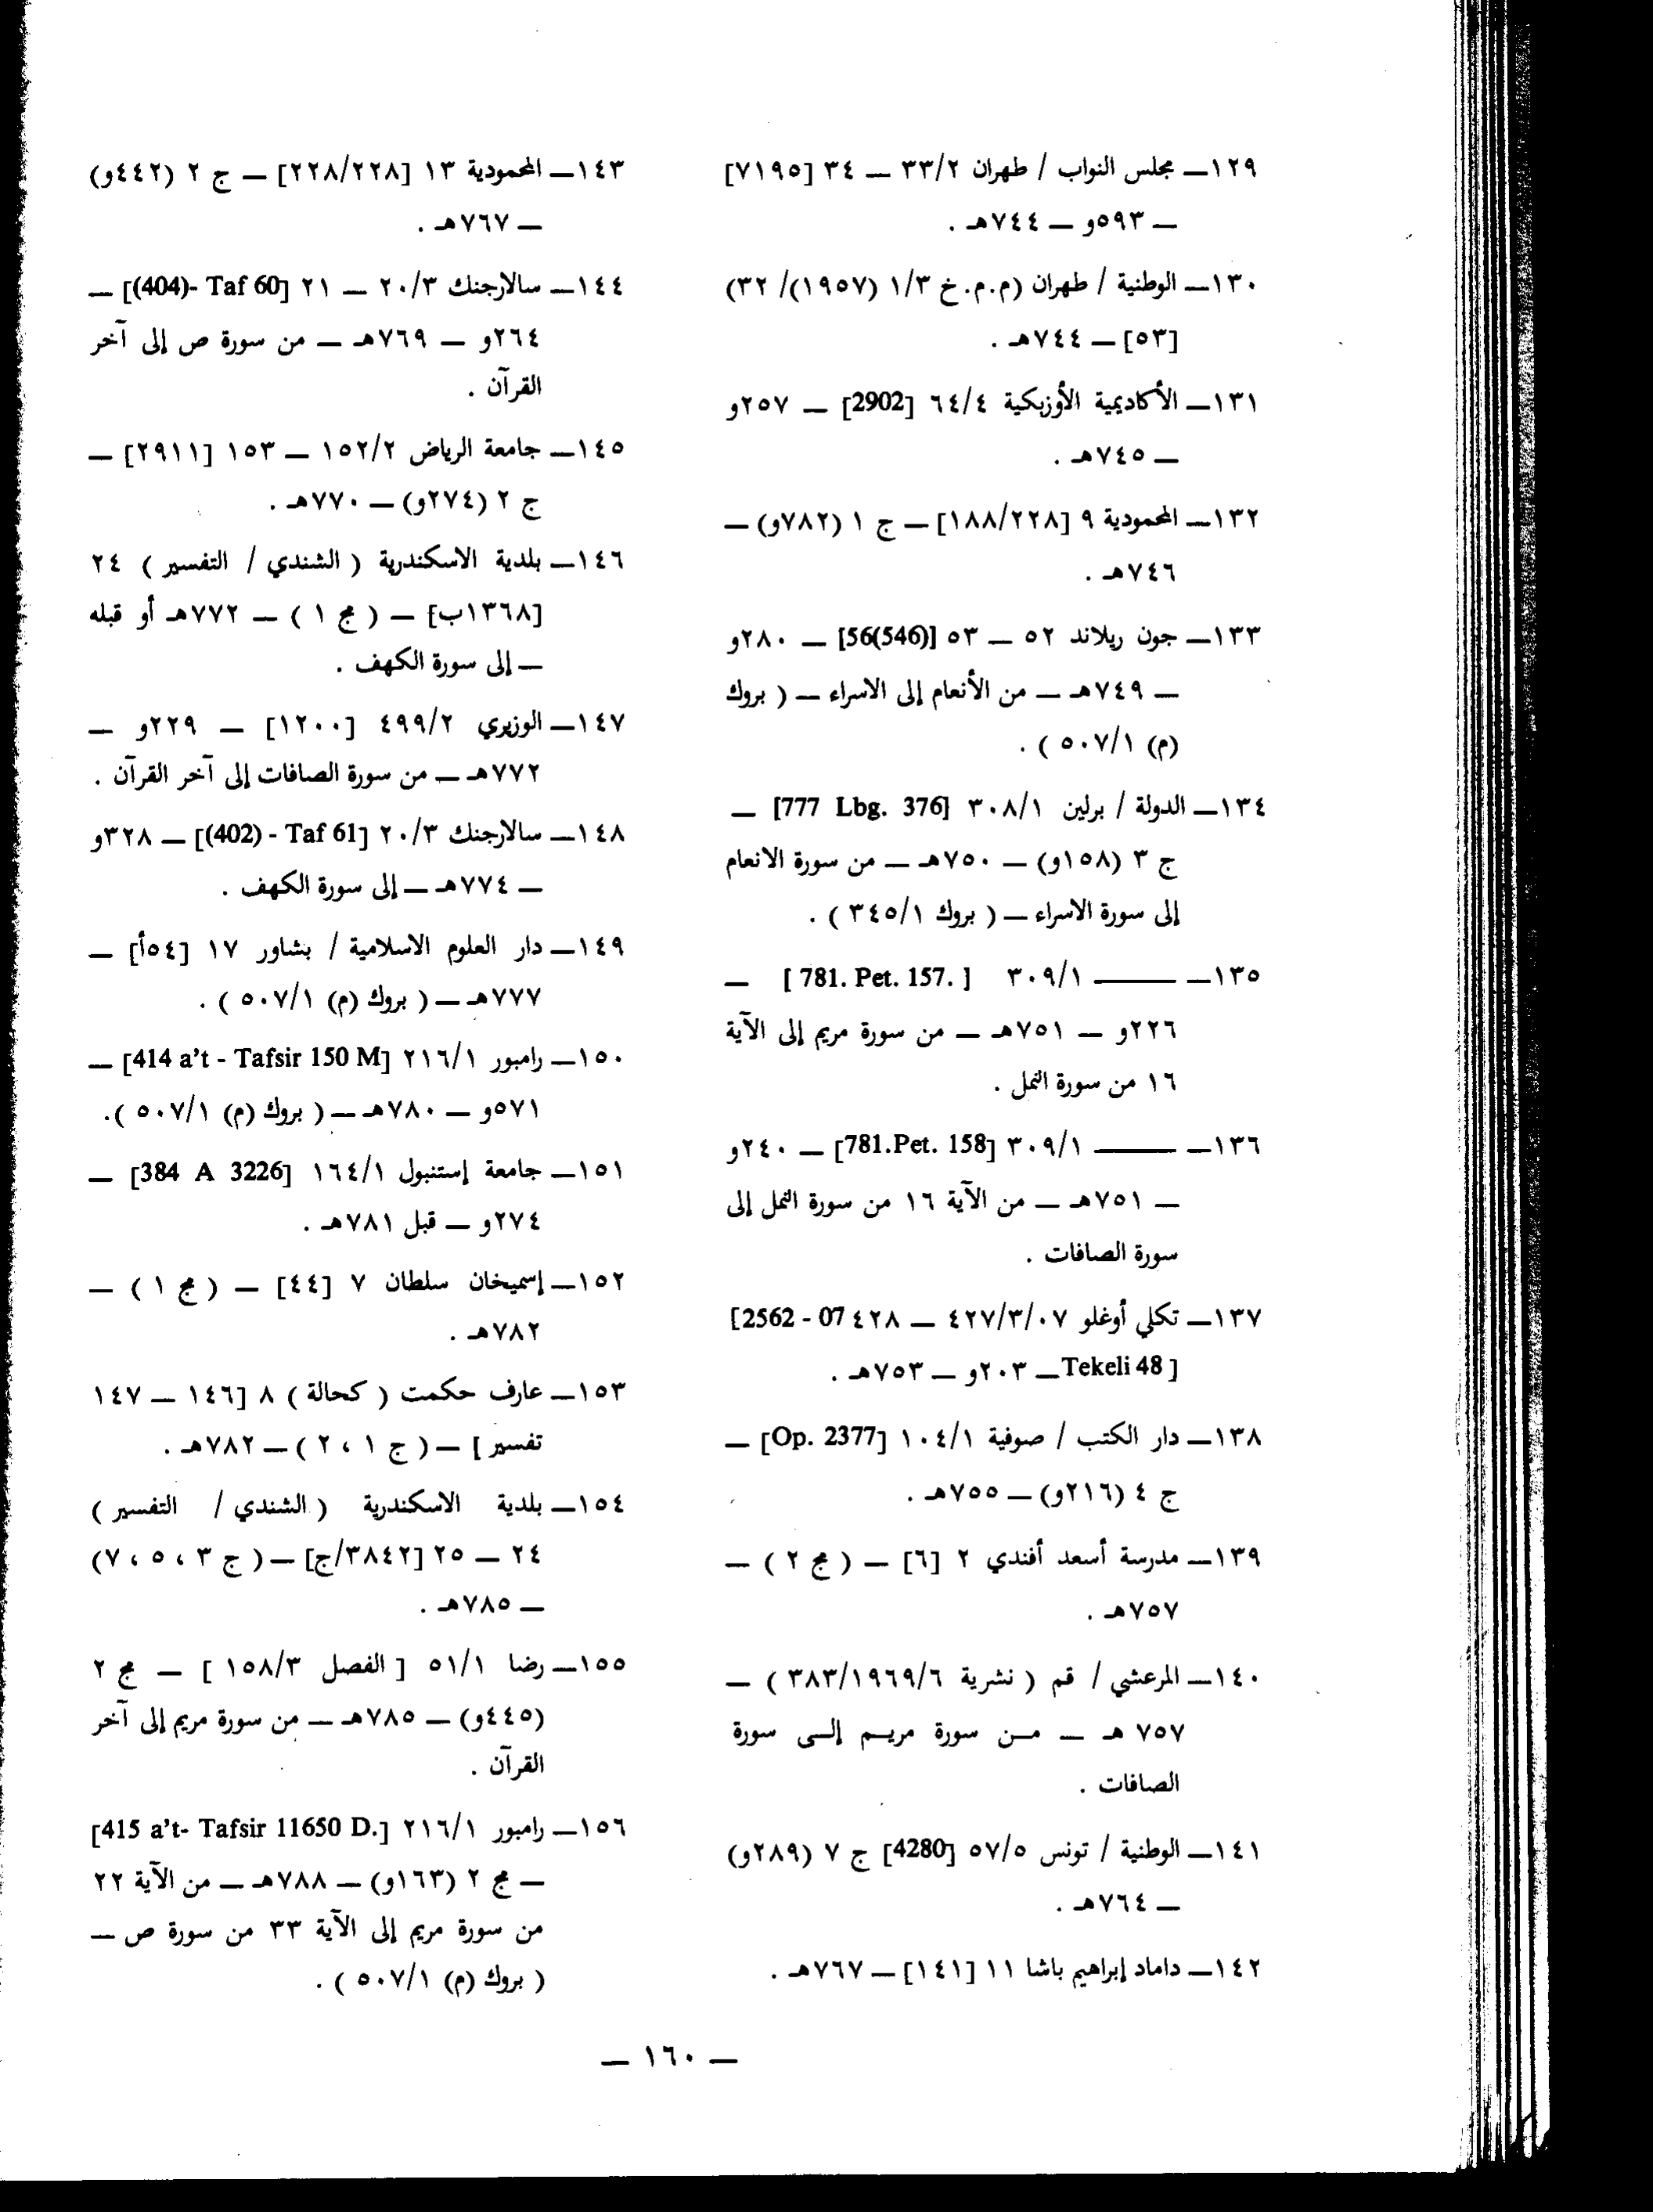 ١٢٩ــ مجلس النواب / طهران ٣٣/٢ ــ ٣٤ [٧١٩٥]
ــ ٥٩٣و ــ ٧٤٤هـ .
١٣٠ــ الوطنية / طهران (م.م.خ ١/٣ (١٩٥٧)/ ٣٢)
[٥٣] ــ ٧٤٤هـ .
١٣١ــ الأكاديمية الأوزبكية ٦٤/٤ [2902] ــ ٢٥٧و
ــ ٧٤٥هـ .
١٣٢ــ المحمودية ٩ [١٨٨/٢٢٨] ــ ج ١ (٧٨٢و) ــ
٧٤٦هـ .
١٣٣ــ جون ريلاند ٥٢ ــ ٥٣ [56(546)] ــ ٢٨٠و
ــ ٧٤٩هـ ــ من الأنعام إلى الاسراء ــ ( بروك
(م) ٥٠٧/١ ) .
١٣٤ــ الدولة / برلين ٣٠٨/١ [777 Lbg. 376] ــ
ج ٣ (١٥٨و) ــ ٧٥٠هـ ــ من سورة الانعام
إلى سورة الاسراء ــ ( بروك ٣٤٥/١ ) .
١٣٥ــ ــــــــ ٣٠٩/١ [ 781. Pet. 157. ] ــ
٢٢٦و ــ ٧٥١هـ ــ من سورة مريم إلى الآية
١٦ من سورة النمل .
١٣٦ــ ــــــــ ٣٠٩/١ [781.Pet. 158] ــ ٢٤٠و
ــ ٧٥١هـ ــ من الآية ١٦ من سورة النمل إلى
سورة الصافات .
١٣٧ــ تكلي أوغلو ٤٢٧/٣/٠٧ ــ ٤٢٨ [2562 - 07
Tekeli 48 ] ــ ٢٠٣و ــ ٧٥٣هـ .
١٣٨ــ دار الكتب / صوفية ١٠٤/١ [Op. 2377] ــ
ج ٤ (٢١٦و) ــ ٧٥٥هـ .
١٣٩ــ مدرسة أسعد أفندي ٢ [٦] ــ ( مج ٢ ) ــ
٧٥٧هـ .
١٤٠ــ المرعشي / قم ( نشرية ٣٨٣/١٩٦٩/٦ ) ــ
٧٥٧ هـ ــ مـن سورة مريـم إلـى سورة
الصافات .
١٤١ــ الوطنية / تونس ٥٧/٥ [4280] ج ٧ (٢٨٩و)
ــ ٧٦٤هـ .
١٤٢ــ داماد إبراهيم باشا ١١ [١٤١] ــ ٧٦٧هـ .
١٤٣ــ المحمودية ١٣ [٢٢٨/٢٢٨] ــ ج ٢ (٤٤٢و)
ــ ٧٦٧هـ .
١٤٤ــ سالارجنك ٢٠/٣ ــ ٢١ [(404)- Taf 60] ــ
٢٦٤و ــ ٧٦٩هـ ــ من سورة ص إلى آخر
القرآن .
١٤٥ــ جامعة الرياض ١٥٢/٢ ــ ١٥٣ [٢٩١١] ــ
ج ٢ (٢٧٤و) ــ ٧٧٠هـ .
١٤٦ــ بلدية الاسكندرية ( الشندي / التفسير ) ٢٤
[١٣٦٨ب] ــ ( مج ١ ) ــ ٧٧٢هـ أو قبله
ــ إلى سورة الكهف .
١٤٧ــ الوزيري ٤٩٩/٢ [١٢٠٠] ــ ٢٢٩و ــ
٧٧٢هـ ــ من سورة الصافات إلى آخر القرآن .
١٤٨ــ سالارجنك ٢٠/٣ [(402) - Taf 61] ــ ٣٢٨و
ــ ٧٧٤هـ ــ إلى سورة الكهف .
١٤٩ــ دار العلوم الاسلامية / بشاور ١٧ [٥٤أ] ــ
٧٧٧هـ ــ ( بروك (م) ٥٠٧/١ ) .
١٥٠ــ رامبور ٢١٦/١ [414 a't - Tafsir 150 M] ــ
٥٧١و ــ ٧٨٠هـ ــ ( بروك (م) ٥٠٧/١ ).
١٥١ــ جامعة إستنبول ١٦٤/١ [384 A 3226] ــ
٢٧٤و ــ قبل ٧٨١هـ .
١٥٢ــ إسميخان سلطان ٧ [٤٤] ــ ( مج ١ ) ــ
٧٨٢هـ .
١٥٣ــ عارف حكمت ( كحالة ) ٨ [١٤٦ ــ ١٤٧
تفسير ] ــ ( ج ١ ، ٢ ) ــ ٧٨٢هـ .
١٥٤ــ بلدية الاسكندرية ( الشندي / التفسير )
٢٤ ــ ٢٥ [٣٨٤٢/ج] ــ ( ج ٣ ، ٥ ، ٧)
ــ ٧٨٥هـ .
١٥٥ــ رضا ٥١/١ [ الفصل ١٥٨/٣ ] ــ مج ٢
(٤٤٥و) ــ ٧٨٥هـ ــ من سورة مريم إلى آخر
القرآن .
١٥٦ــ رامبور ٢١٦/١ [415 a't- Tafsir 11650 D.]
ــ مج ٢ (١٦٣و) ــ ٧٨٨هـ ــ من الآية ٢٢
من سورة مريم إلى الآية ٣٣ من سورة ص ــ
( بروك (م) ٥٠٧/١ ) .
ــ ١٦٠ ــ